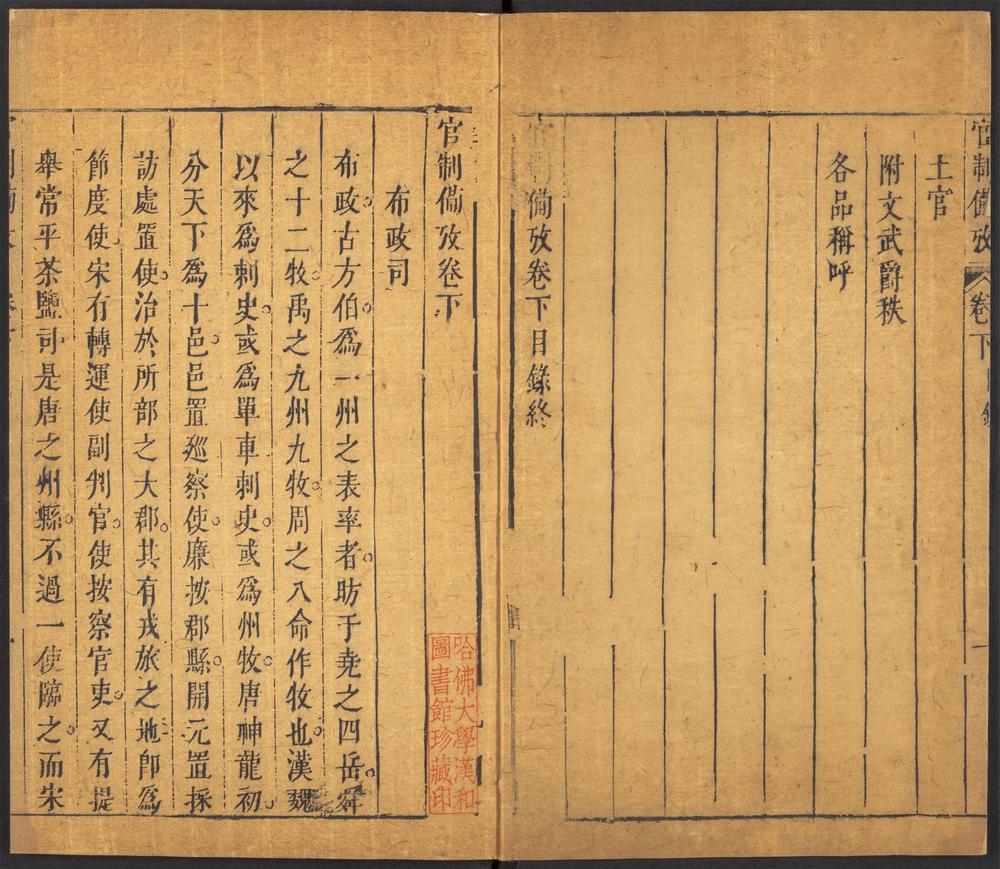 官制備攷 卷下目錄 一
土官
附文武爵秩
各品稱呼
官制備攷卷下目錄終
官制備攷卷下
布政司
布政古方伯爲一州之表率者昉于堯之四岳舜
之十二牧禹之九州九牧周之八命作牧也漢魏
以來爲刺史或爲單車刺史或爲州牧唐神龍初
分天下爲十邑邑置廵察使廉按郡縣開元置採
訪處置使治於所部之大郡其有戎旅之地卽爲
節度使宋有轉運使副判官使按察官吏又有提
舉常平茶鹽司是唐之州縣不過一使臨之而宋
哈佛大學漢和
圖書館珍藏印